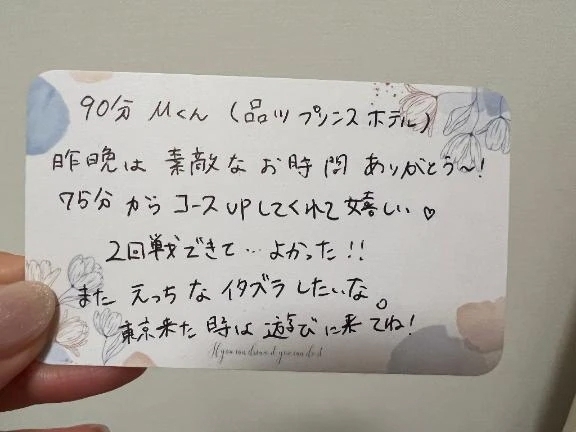 90分 Mくん (品川プリンスホテル)
昨晩は 素敵な お時間 ありがとう〜!
75分 から コースupしてくれて嬉しい♡
2回戦できて…よかった!!
また えっちな イタズラしたいな。
東京来た時は 遊びに来てね!